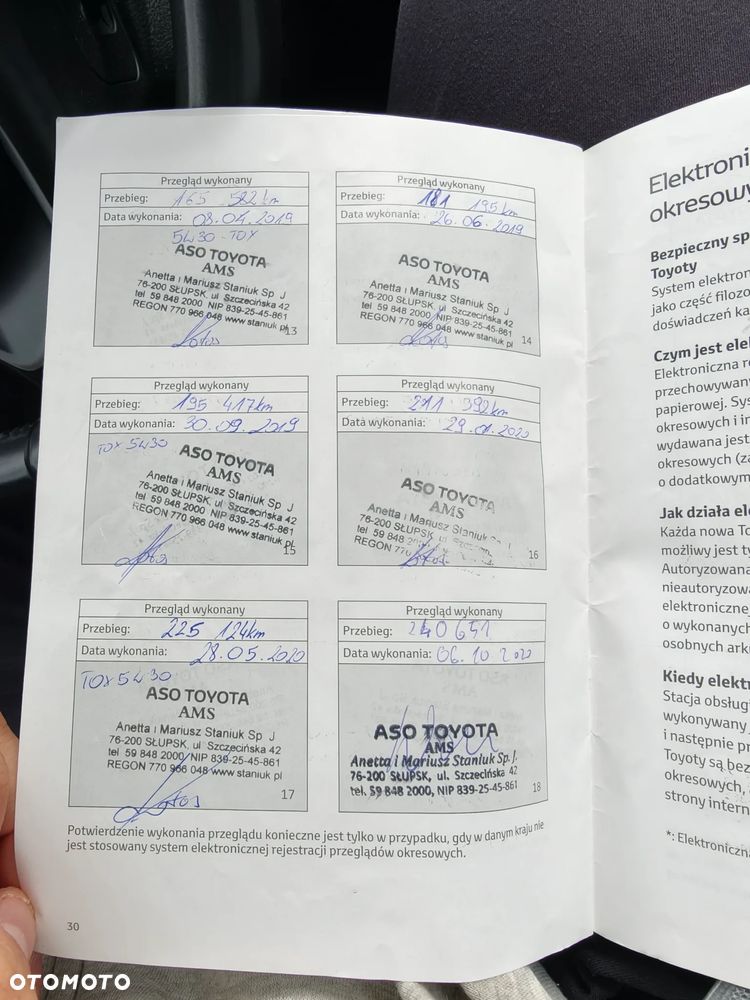 Przegląd wykonany
Przebieg: 165 522 km
Data wykonania: 08.04.2019
5W30-TOX
ASO TOYOTA
AMS
Anetta i Mariusz Staniuk Sp J
76-200 SŁUPSK, ul Szczecińska 42
tel 59 848 2000 NIP 839-25-45-861
REGON 770 966 048 www.staniuk.pl
13
Przegląd wykonany
Przebieg: 181 195 km
Data wykonania: 26.06.2019
ASO TOYOTA
AMS
Anetta i Mariusz Staniuk Sp J
76-200 SŁUPSK, ul Szczecińska 42
tel 59 848 2000 NIP 839-25-45-861
REGON 770 966 048 www.staniuk.pl
14
Przegląd wykonany
Przebieg: 195 417km
Data wykonania: 30.09.2019
TOX 5W30
ASO TOYOTA
AMS
Anetta i Mariusz Staniuk Sp J
76-200 SŁUPSK, ul Szczecińska 42
tel 59 848 2000 NIP 839-25-45-861
REGON 770 966 048 www.staniuk.pl
15
Przegląd wykonany
Przebieg: 211 392km
Data wykonania: 29.01.2020
ASO TOYOTA
AMS
Anetta i Mariusz Staniuk Sp
76-200 SŁUPSK, ul Szczecińska
tel 59 848
REGON 770
16
Przegląd wykonany
Przebieg: 225 124km
Data wykonania: 28.05.2020
TOX 5W30
ASO TOYOTA
AMS
Anetta i Mariusz Staniuk Sp J
76-200 SŁUPSK, ul Szczecińska 42
tel 59 848 2000 NIP 839-25-45-861
REGON 770 966 048 www.staniuk pl
17
Przegląd wykonany
Przebieg: 240 651
Data wykonania: 06.10.2020
ASO TOYOTA
AMS
Anetta i Mariusz Staniuk Sp. J.
76-200 SŁUPSK, ul. Szczecińska 42
tel. 59 848 2000, NIP 839-25-45-861
18
Potwierdzenie wykonania przeglądu konieczne jest tylko w przypadku, gdy w danym kraju nie
jest stosowany system elektronicznej rejestracji przeglądów okresowych.
30
Elektroni
okresowy
Bezpieczny sp
Toyoty
System elektron
jako część filozo
doświadczeń ka
Czym jest elek
Elektroniczna re
przechowywan
papierowej. Sys
okresowych i in
wydawana jest
okresowych (za
o dodatkowym
Jak działa ele
Każda nowa To
możliwy jest ty
Autoryzowana
nieautoryzowa
elektronicznej
o wykonanych
osobnych arki
Kiedy elektr
Stacja obsługi
wykonywany
i następnie pr
Toyoty są bez
okresowych,
strony intern
*: Elektroniczn
OTOMOTO